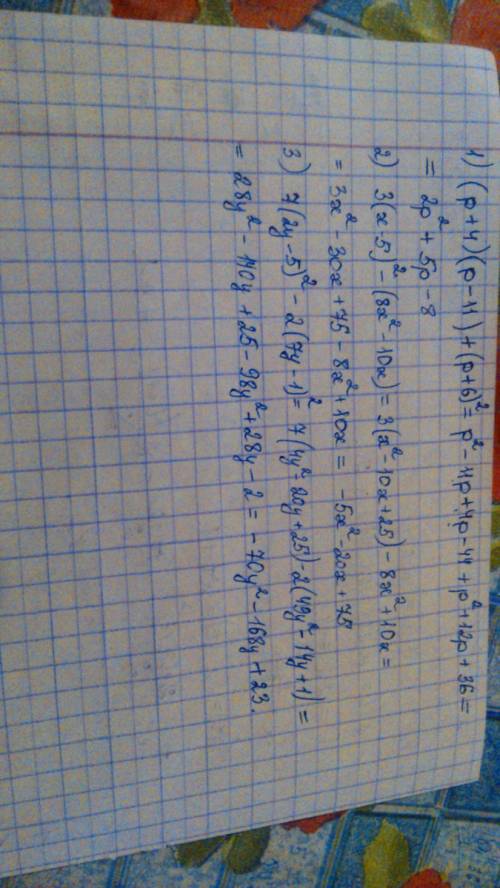 1) (p+4)(p-11)+(p+6)²= p²-11p+4p-44+p²+12p+36=
= 2p²+5p-8
2) 3(x-5)²-(8x²-10x)= 3(x²-10x+25)-8x²+10x=
= 3x²-30x+75-8x²+10x= -5x²-20x+75
3) 7(2y-5)²-2(7y-1)²= 7(4y²-20y+25)-2(49y²-14y+1)=
= 28y²-140y+25-98y²+28y-2= -70y²-168y+23.